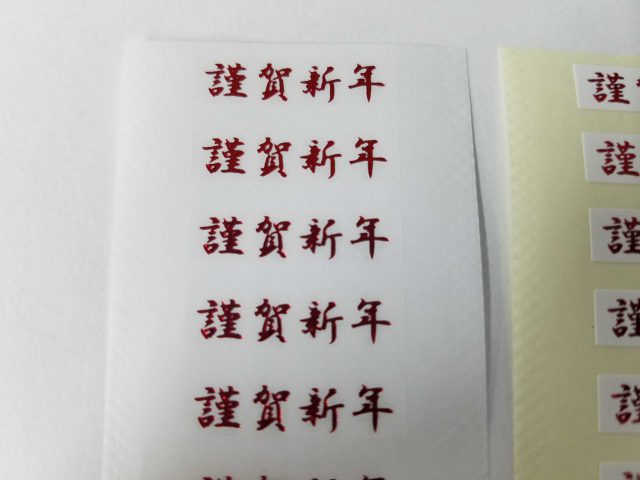 謹賀新年
謹賀新年
謹賀新年
謹賀新年
謹賀新年
謹
謹
謹
謹
謹